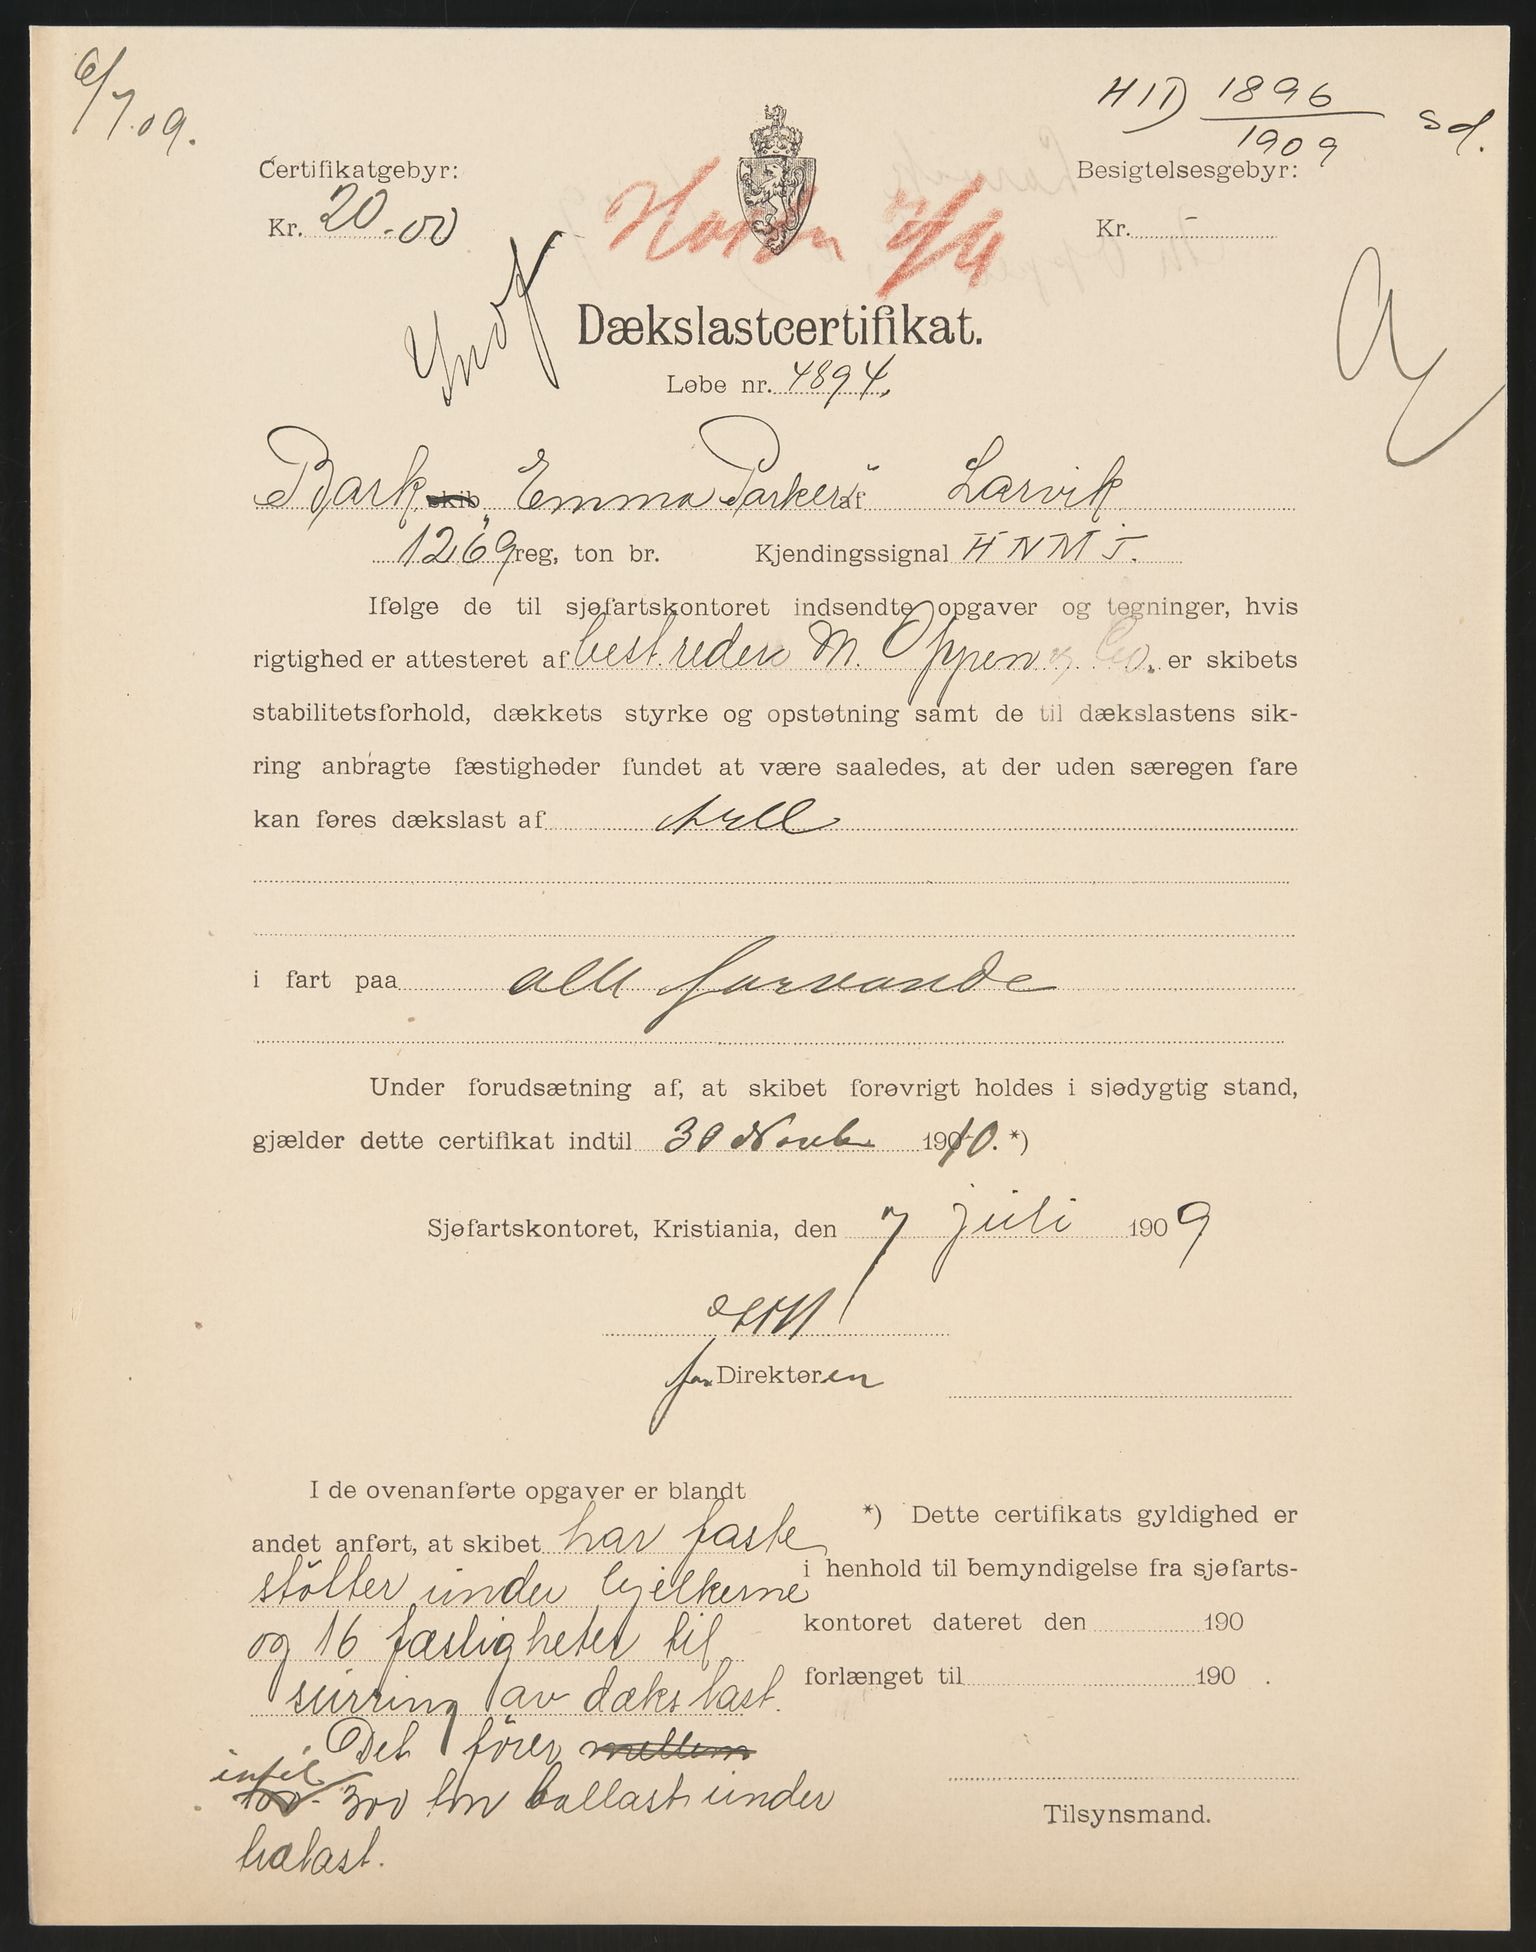 6/7.09.
HID 1896/1909 sd.
Certifikatgebyr:
Besigtelsesgebyr:
Kr. 20.00
Kr. -
Dækslastcertifikat.
Løbe nr. 4894.
Bark skib „Emma Parker" af Larvik
1269 reg, ton br. Kjendingssignal HNMJ.
Ifølge de til sjøfartskontoret indsendte opgaver og tegninger, hvis
rigtighed er attesteret af best. reder M. Oppen & Co. er skibets
stabilitetsforhold, dækkets styrke og opstøtning samt de til dækslastens sik-
ring anbragte fæstigheder fundet at være saaledes, at der uden særegen fare
kan føres dækslast af træ
i fart paa alle farvande
Under forudsætning af, at skibet forøvrigt holdes i sjødygtig stand,
gjælder dette certifikat indtil 30 Novbr 1910. *)
Sjøfartskontoret, Kristiania, den 7 juli 1909
for Direktøren
I de ovenanførte opgaver er blandt
andet anført, at skibet har faste
støtter under bjelkerne
og 16 fæstigheter til
surring av dækslast.
Det fører mellem
indtil
100- 300 ton ballast under
trælast.
*) Dette certifikats gyldighed er
i henhold til bemyndigelse fra sjøfarts-
kontoret dateret den 190
forlænget til 190 .
Tilsynsmand.